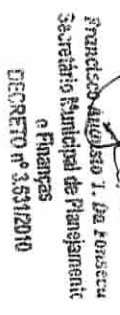 Francisco Augusto T. Da Fonseca
Secretário Municipal de Planejamento
e Finanças
DECRETO nº 3.511/2010